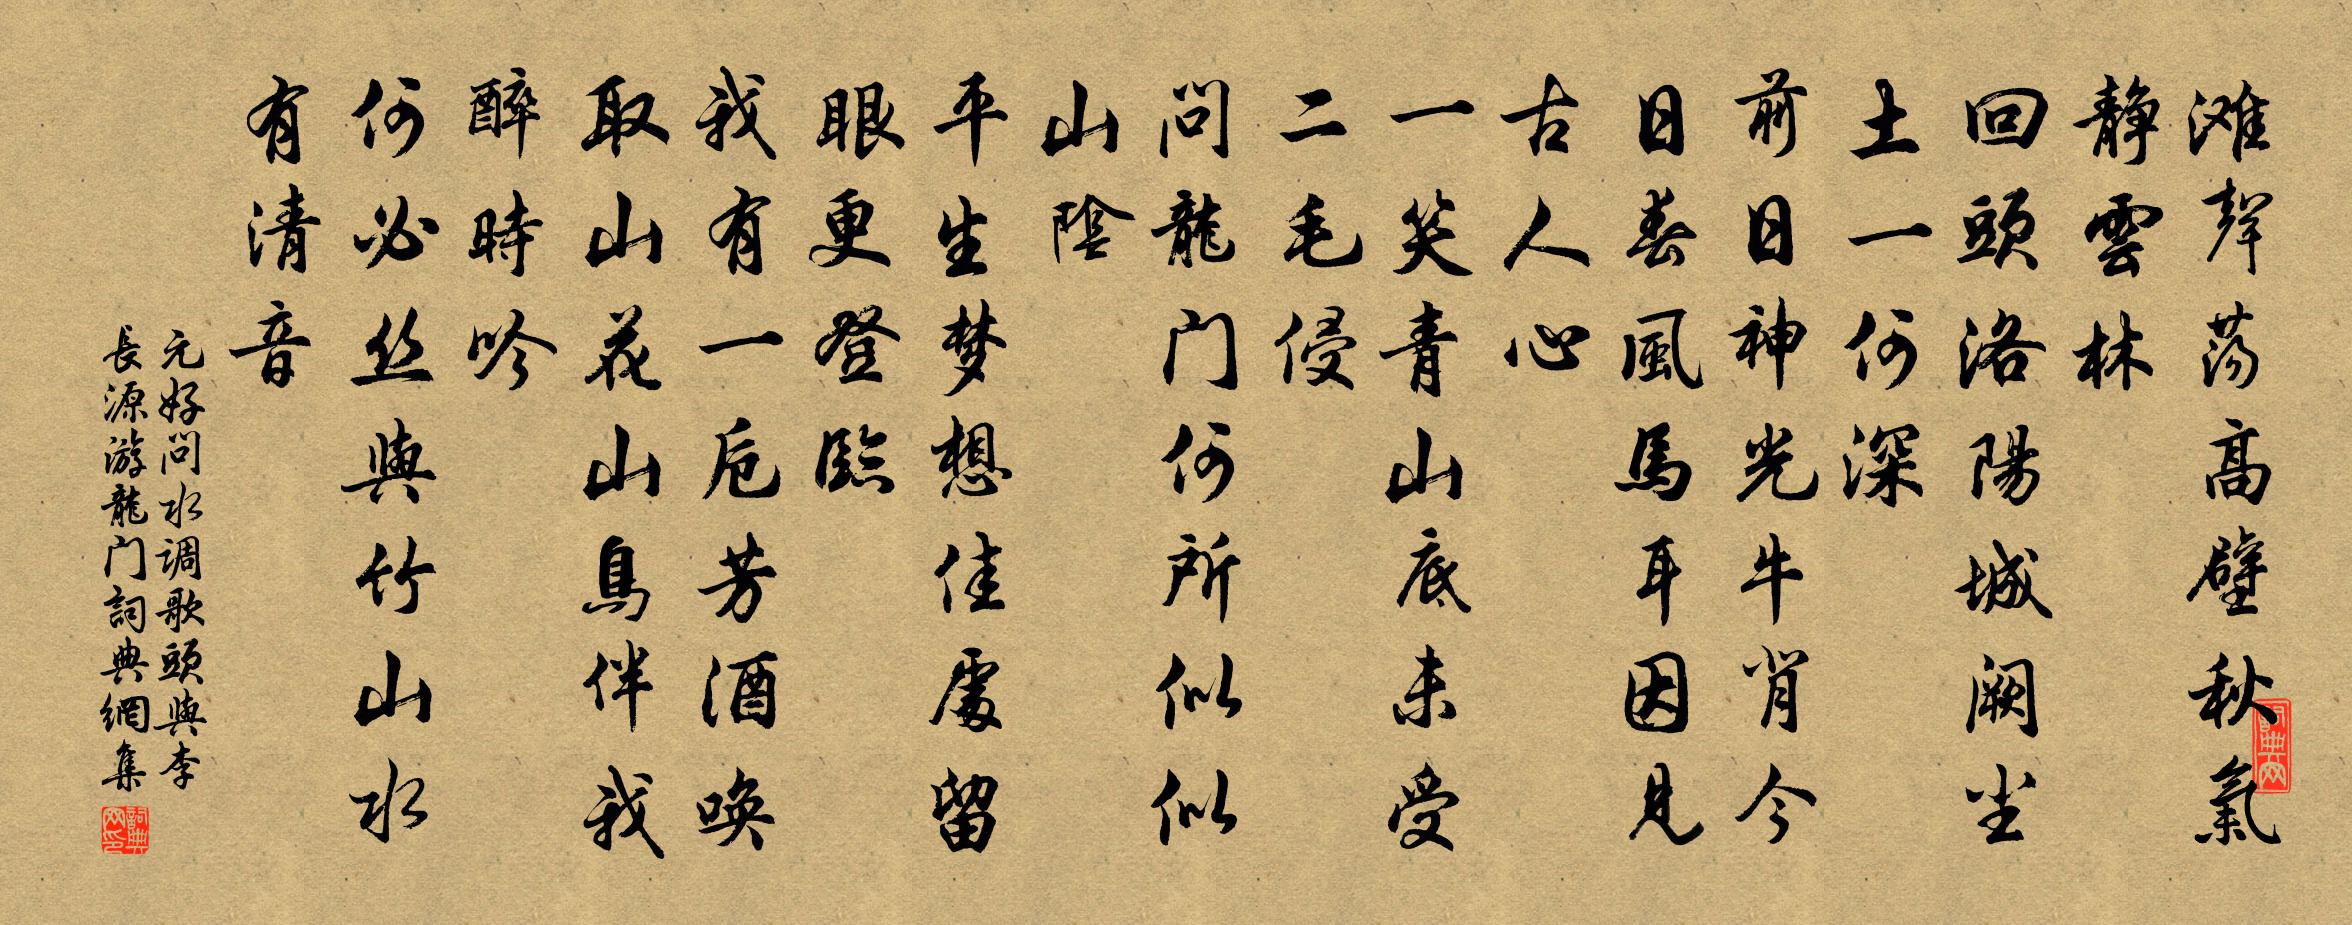 滩聲荡高壁秋氣
靜雲林
回頭洛陽城阙尘
土一何深
前日神光牛背今
日春風馬耳因見
古人心
一笑青山底未受
二毛侵
問龍门何所似似
山陰
平生梦想佳處留
眼更登臨
我有一卮芳酒唤
取山花山鳥伴我
醉時吟
何必丝與竹山水
有清音
元好問水调歌頭與李
長源游龍门詞典網集
詞典网
詞典网印